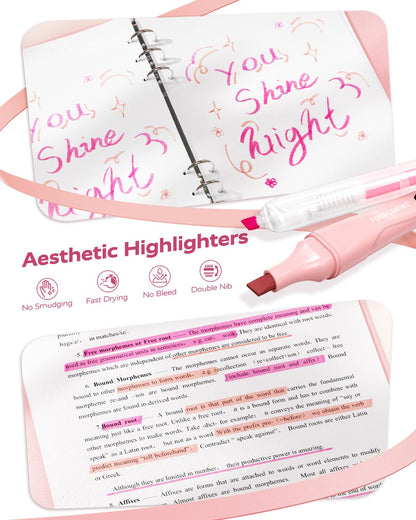 You
Shine
You
Shine
Aesthetic Highlighters
No Smudging
Fast Drying
No Bleed
Double Nib
in matches/iz.
5. Free morphemes or Free root The morphemes have complete meaning and can be
used as free grammatical units in sentences, e.g. cat, walk. They are identical with root words.
morphemes which are independent of other morphemes are considered to be free.
6. Bound Morphemes The morphemes cannot occur as separate words. They are
bound to other morphemes to form words, e.g. recollection (re+collect+ion) collect – free
morpheme re-and -ion are bound morphemes. include bound root and affix Bound
morphemes are found in derived words.
7. Bound root A bound root is that part of the word that carries the fundamental
meaning just like a free root. Unlike a free root, it is a bound form and has to combine with
other morphemes to make words. Take -dict- for example: it conveys the meaning of "say or
speak" as a Latin root, but not as a word. With the prefix pre- (=before) we obtain the verb
predict meaning "tell beforehand". Contradict " speak against". Bound roots are either Latin
or Greek.
Although they are limited in number, their productive power is amazing.
8. Affixes Affixes are forms that are attached to words or word elements to modify
Almost affixes are bound morphemes.